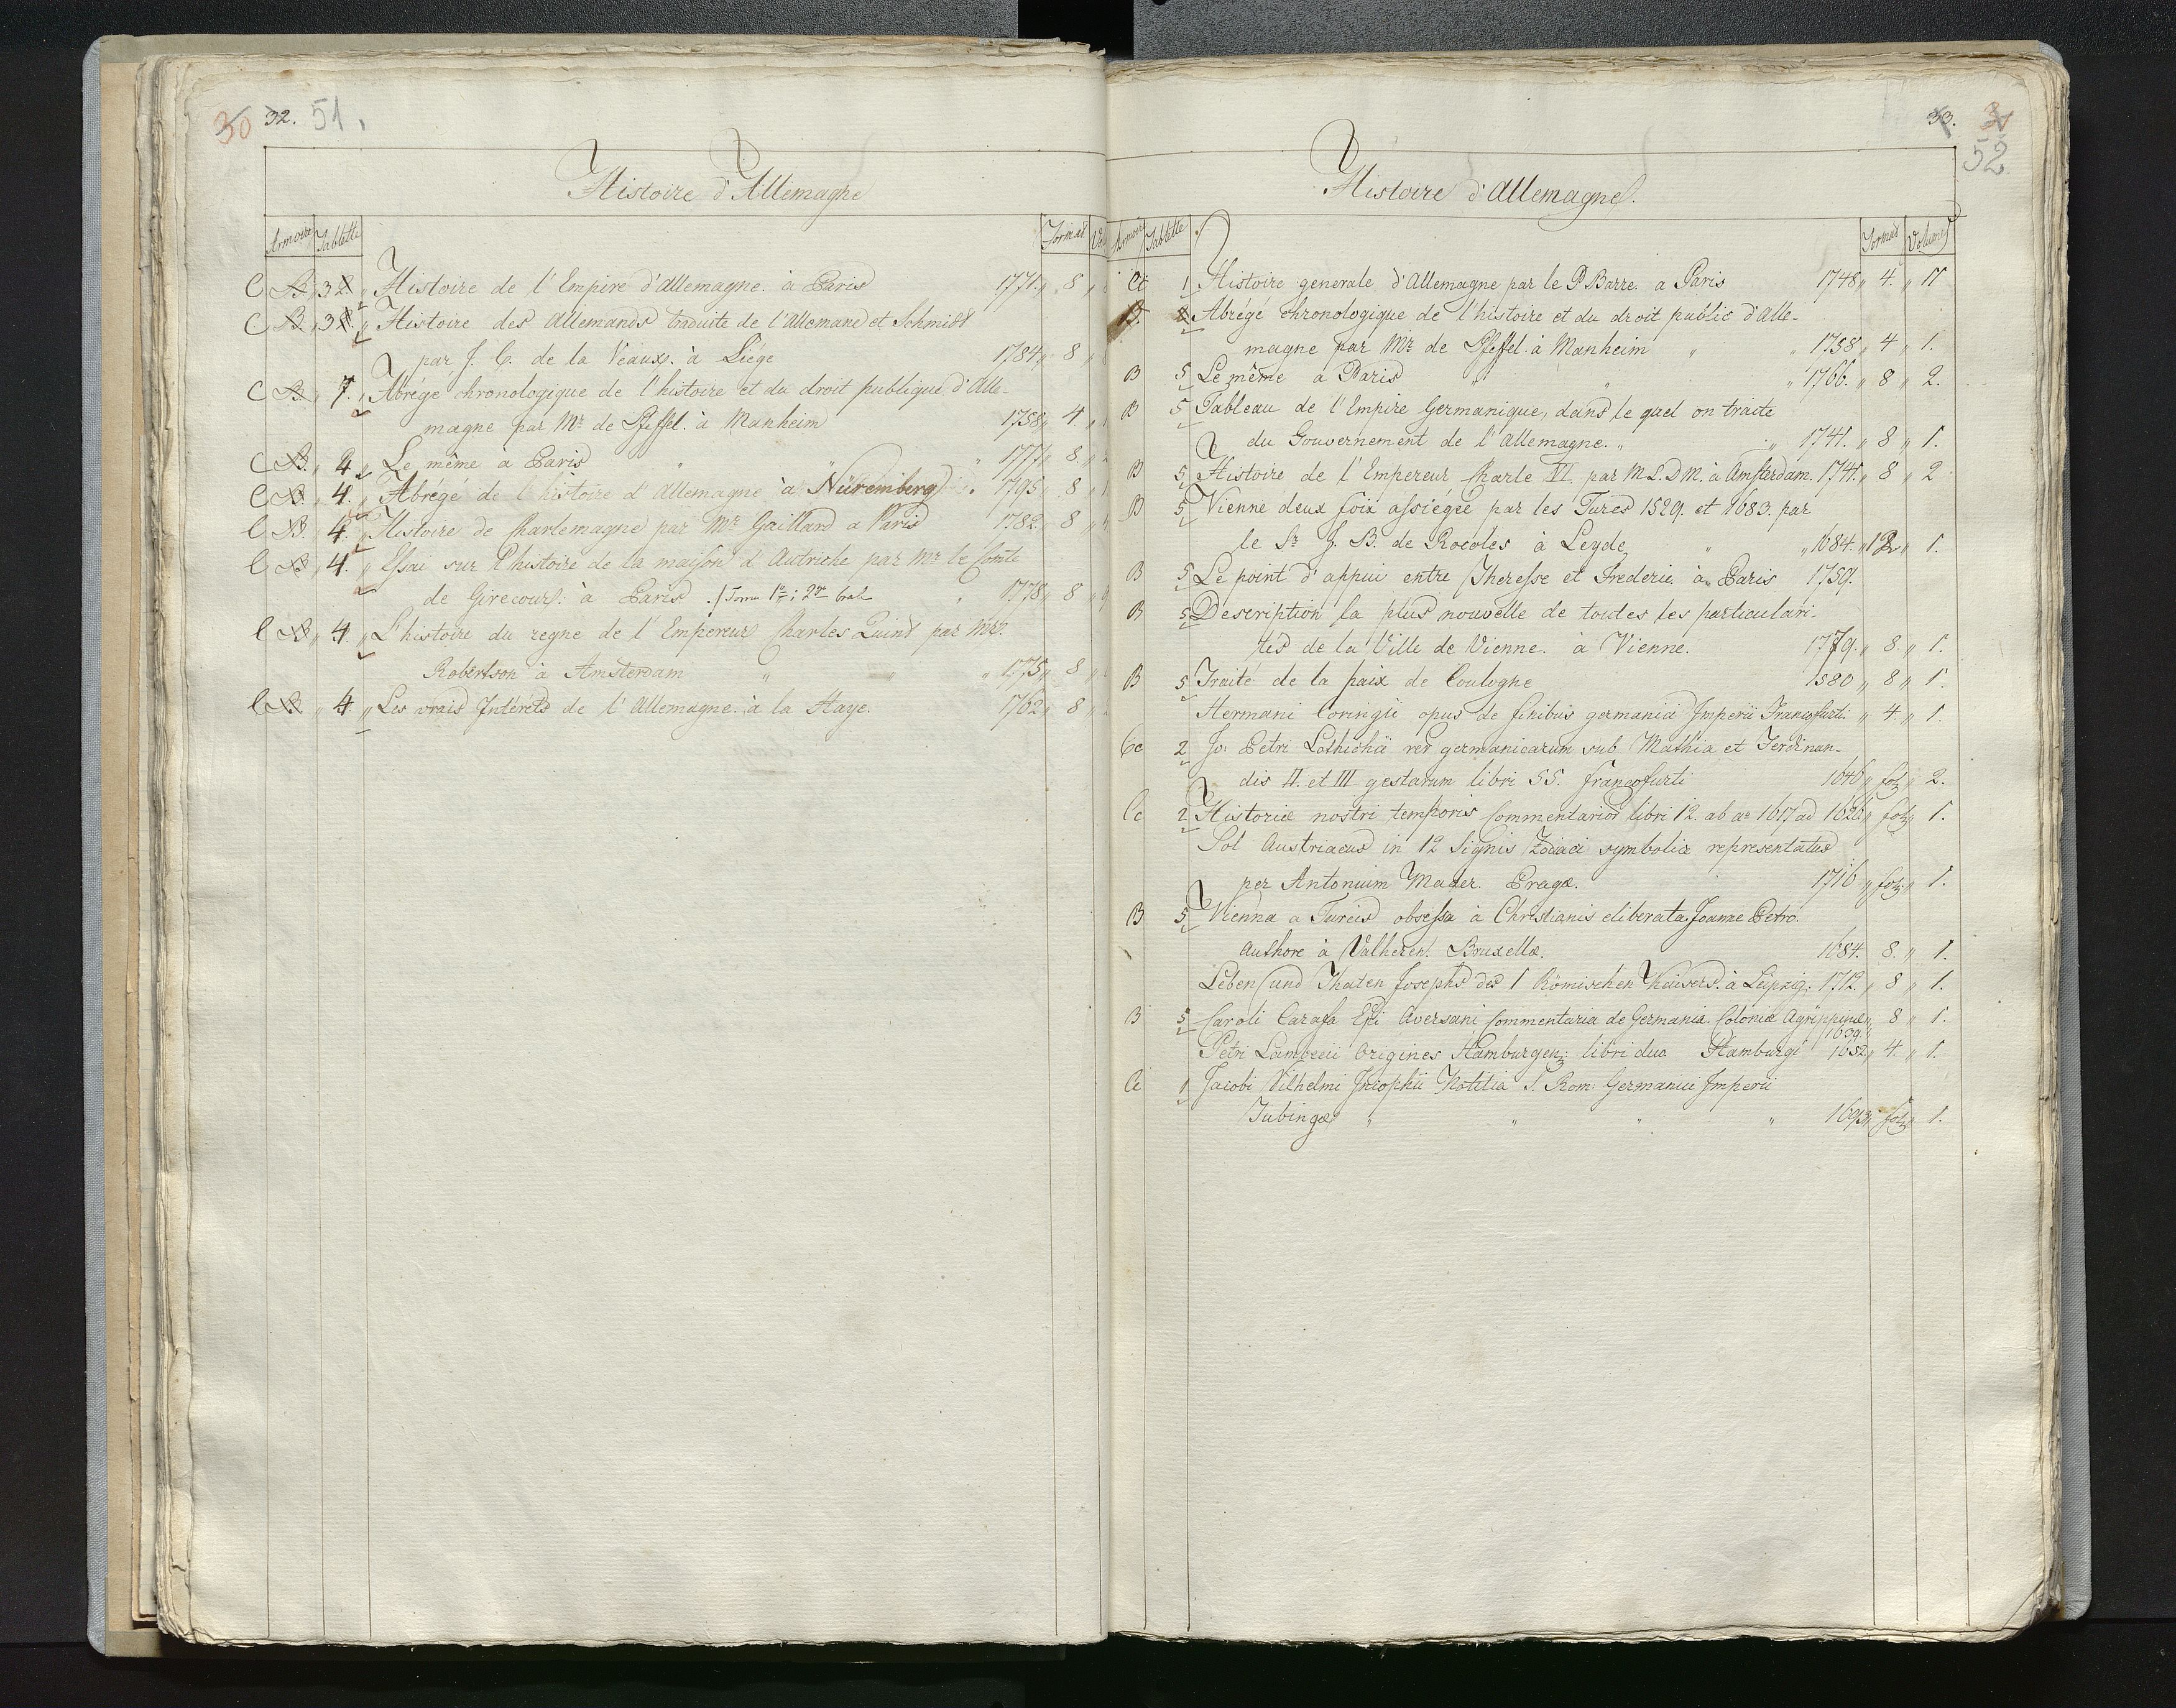 30 32. 51.
Histoire d'Allemagne
Armoire Tablette Format
C B. 32. Histoire de l'Empire d'Allemagne. à Paris 1771. 8
C B. 3 Histoire des Allemands traduite de l'Allemand et Schmidt
par J. C. de la Veaux. à Liége 1784 8
C B 7. Abrégé chronologique de l'histoire et du droit publique d'Alle-
magne par Mr de Pfeffel. à Manheim 1758 4
C B. 4 Le même à Paris " " " 1777 8
C B. 4. Abrégé de l'histoire d'Allemagne à Nüremberg 1795 8
C B. 4. Histoire de Charlemagne par Mr Gaillard a Paris 1782 8
C B 4. Essai sur l'histoire de la maison d'Autriche par Mr le Comte
de Girecour: à Paris 1778 8
C B 4. L'histoire du regne de l'Empereur Charles Quint par Mr.
Robertson à Amsterdam " " " 1775 8
C B 4. Les vrais Intérêts de l'Allemagne. à la Haye. 1762 8
33. 31
52
Histoire d'Allemagne.
Armoire Tablette Format Volumes
Cc 1 Histoire generale d'Allemagne par le P Barre. a Paris 1748 4. 11
Abrégé chronologique de l'histoire et du droit public d'Alle-
magne par Mr de Pfeffel. à Manheim " " 1758 4 1.
B 5 Le même a Paris " " " 1766. 8 2.
B 5 Tableau de l'Empire Germanique, dans le quel on traite
du Gouvernement de l'Allemagne. " " 1741. 8 1.
B 5 Histoire de l'Empereur Charle VI. par M. L. D M. à Amsterdam. 1741. 8 2
B 5 Vienne deux foix assiégée par les Turcs 1529. et 1683. par
le Sr J. B. de Rocoles à Leyde " 1684. 12 1.
B 5 Le point d'appui entre Theresse et Frederic à Paris 1759.
B 5 Description la plus nouvelle de toutes les particulari-
tés de la Ville de Vienne. à Vienne. 1779. 8. 1.
B 5 Traité de la paix de Coulogne 1580 8 1.
Hermani Coringii opus de finibus germanici Imperii Francofurti 4. 1.
Cc 2 Jo: Petri Lothichii rer germanicarum sub Mathia et Ferdinan-
dis II. et III gestarum libri 55. francofurti 1646 fol 2.
Cc 2 Historiæ nostri temporis Commentarior libri 12. ab ao 1617 ad 1626 fol 1.
Sol Austriacus in 12 Signis Zodiaci symbolice representatus
per Antonium Mader. Pragæ. 1716 fol. 1.
B 5 Vienna a Turcis obsessa à Christianis eliberata Joanne Petro
Authore à Valkeren. Bruxellæ. 1684. 8. 1.
Leben und Thaten Josephs des I Römischen Kaisers. à Leipzig. 1712 8 1.
B 5 Caroli Carafa Epi Aversani Commentaria de Germania. Coloniæ Agrippinæ 8 1.
1639.
Petri Lambecii Origines Hamburgen: libri duo Hamburgi 1652 4. 1.
Cc 1 Jacobi Vilhelmi Imophii Notitia S. Rom: Germanici Imperii
Tubingæ " " " " 1693 fol 1.